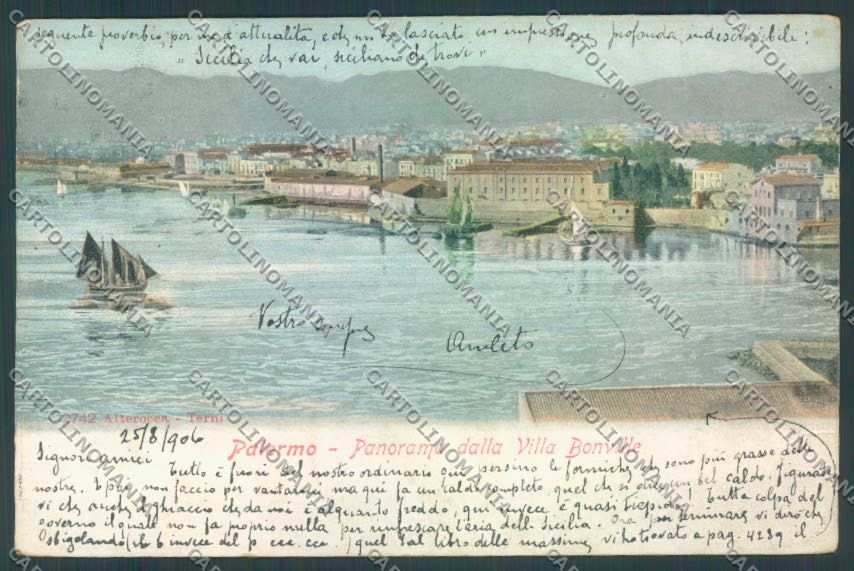 seguente proverbio, per me d'attualità, e che mi ha lasciato un impressione profonda, indescrivibile:
"Sicilia che vai, siciliano che trovi"
Vostro sempre
Amleto
2742 Alterocca - Terni
25/8/906
Palermo - Panorama dalla Villa Bonville
Signori amici Tutto è fuori del nostro ordinario qui persino le formiche, che sono più grasse delle
nostre. E poi, non faccio per vantarmi, ma qui fa un caldo completo, quel che si dice un bel caldo. Figurate
vi che anche il ghiaccio che da noi è alquanto freddo, qui invece è quasi tiepido! Tutta colpa del
governo il quale non fa proprio nulla per rinfrescare l'aria della Sicilia. Ora per terminare vi dirò che
sbigolando (il b invece del p ecc. ecc. ) quel tal libro delle massime, vi ho trovato a pag. 4289 il
CARTOLINOMANIA